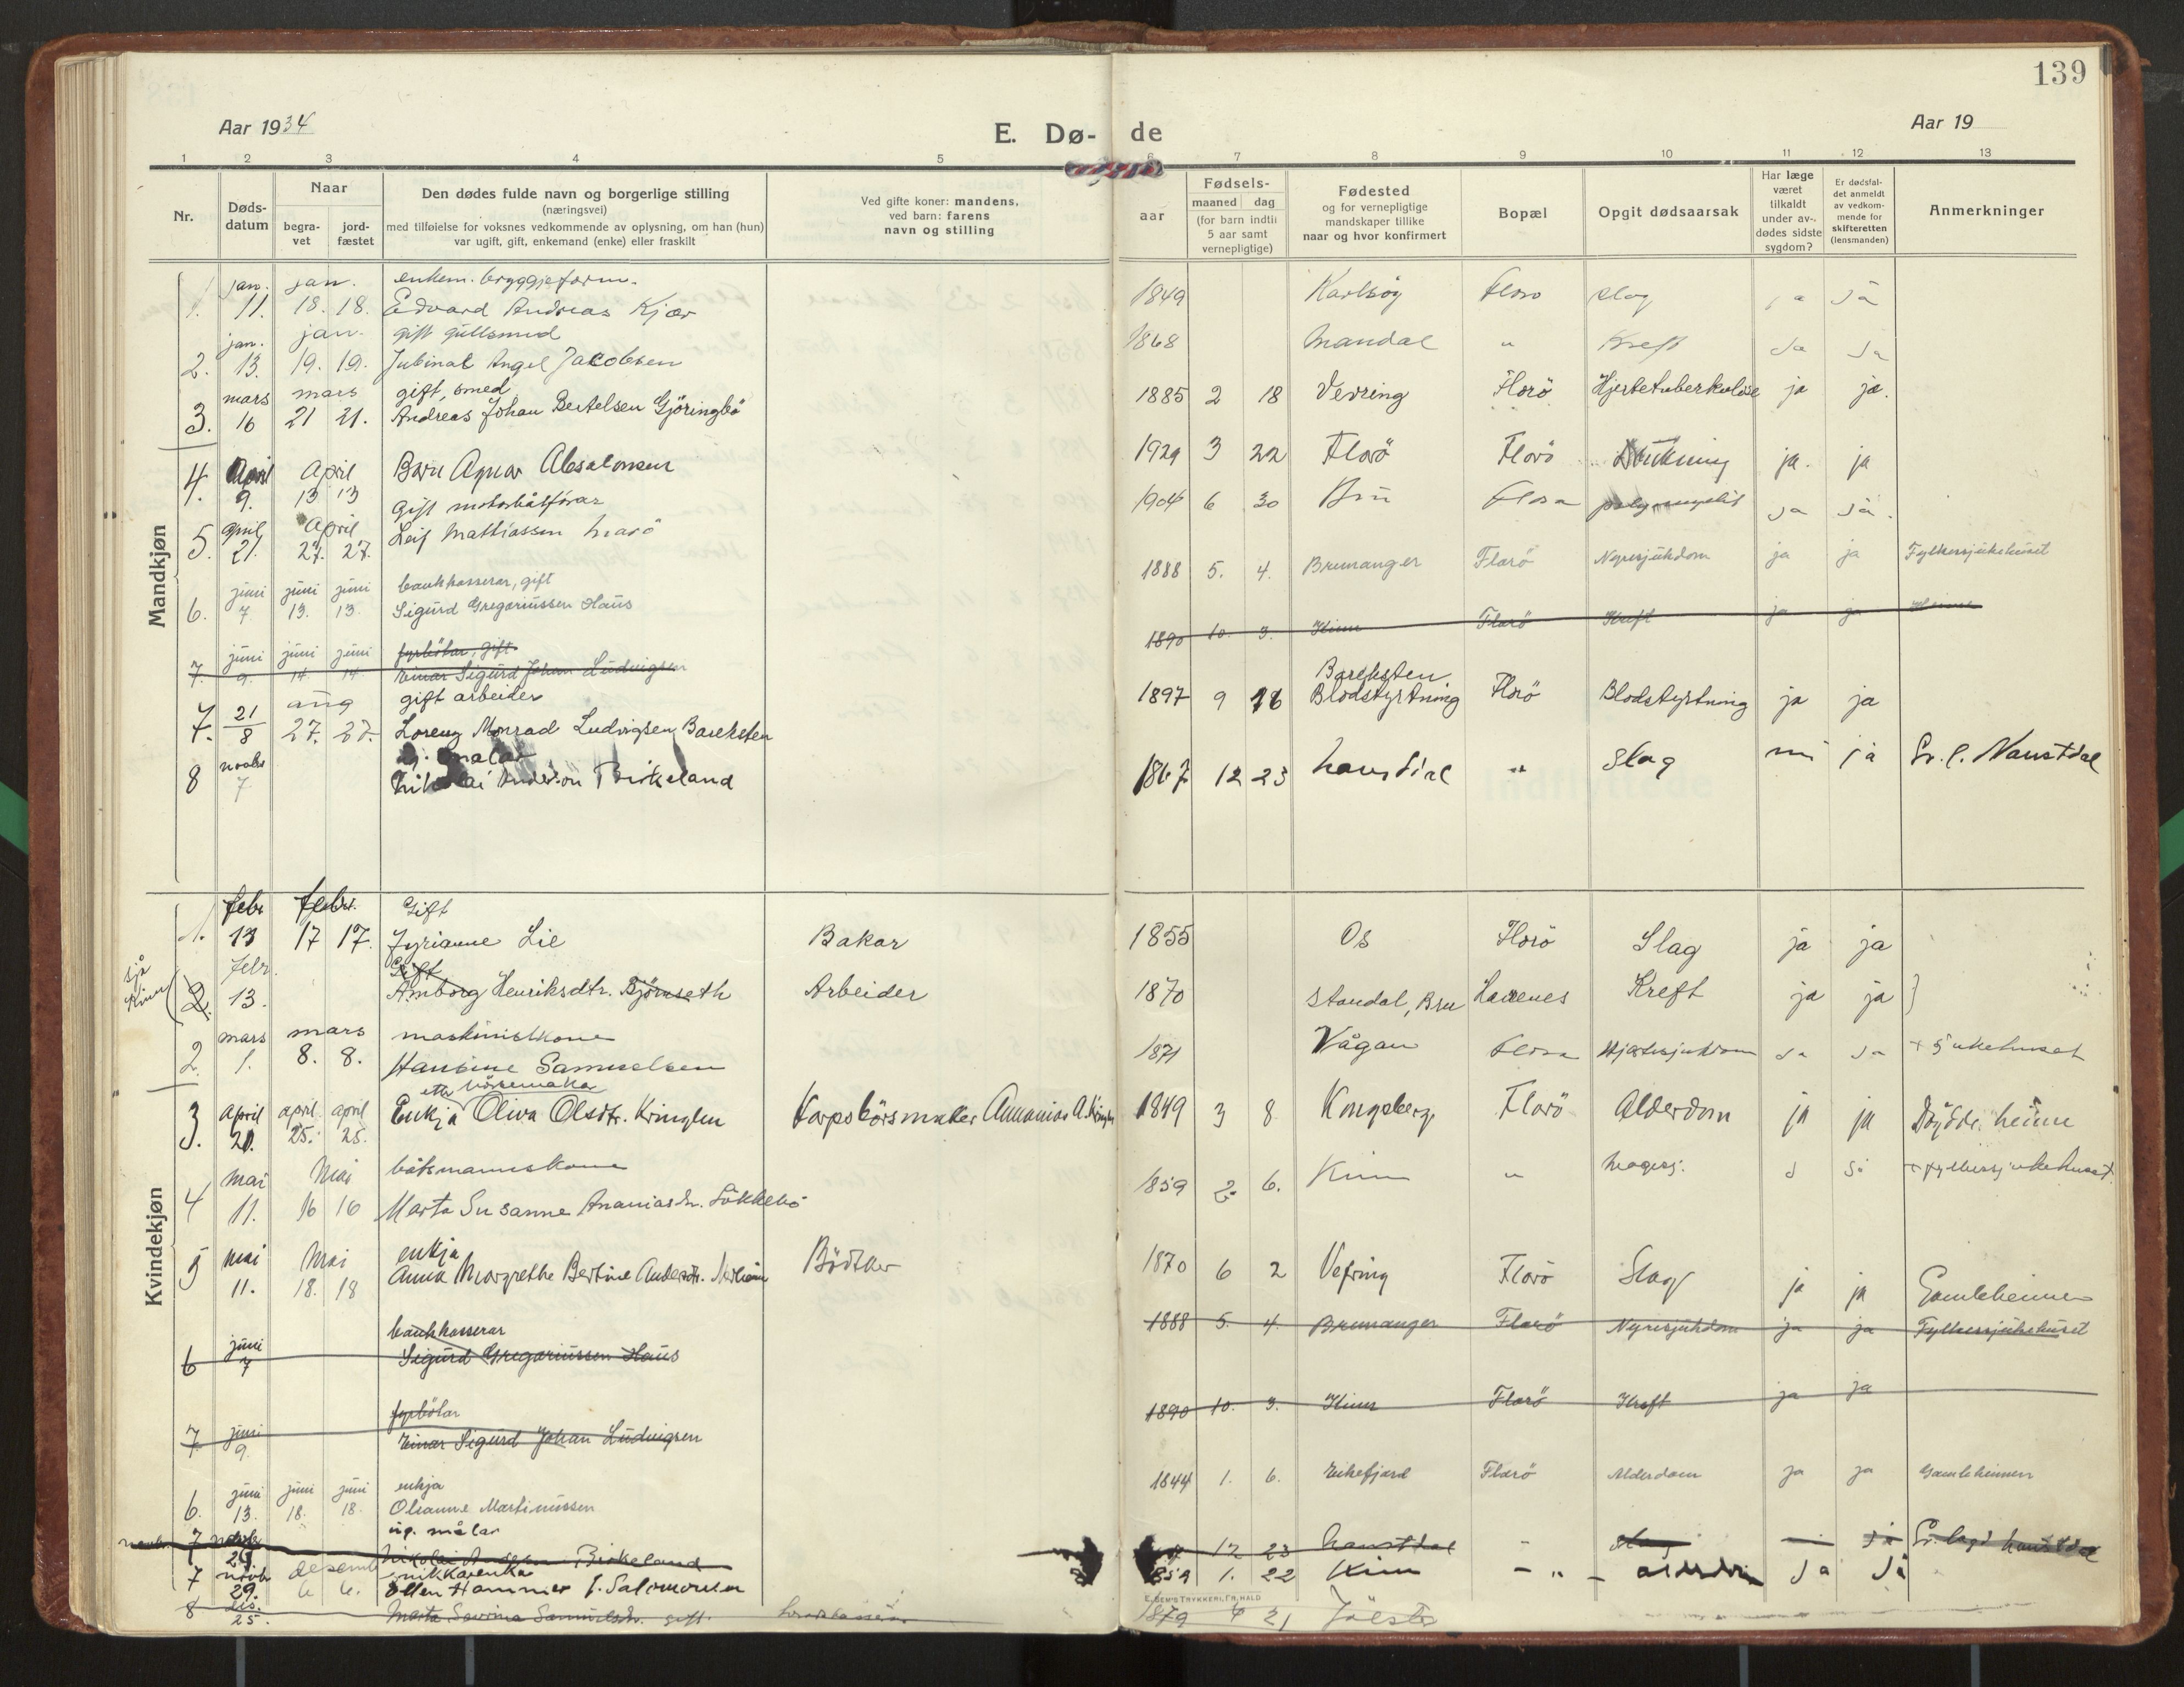 139
Aar 1934
E. Dø- de
Aar 19
1 2 3 4 5 6 7 8 9 10 11 12 13
Nr.
Døds-
datum
Naar
begra-
vet
jord-
fæstet
Den dødes fulde navn og borgerlige stilling
(næringsvei)
med tilføielse for voksnes vedkommende av oplysning, om han (hun)
var ugift, gift, enkemand (enke) eller fraskilt
Ved gifte koner: mandens,
ved barn: farens
navn og stilling
aar
Fødsels-
maaned dag
(for barn indtil
5 aar samt
vernepligtige)
Fødested
og for vernepligtige
mandskaper tillike
naar og hvor konfirmert
Bopæl
Opgit dødsaarsak
Har læge
været
tilkaldt
under av-
dødes sidste
sygdom?
Er dødsfal-
det anmeldt
av vedkom-
mende for
skifteretten
(lensmanden)
Anmerkninger
Mandkjøn
jan. jan. enkem. bryggjeform.
1. 11. 18. 18. Edvard Andreas Kjær 1849 Floro slag ja ja
jan. jan. gift gullsmed
2. 13. 19. 19. Jubinal Angel Jacobsen 1868 Mandal " Kreft Ja Ja
mars mars gift, smed
3. 16 21 21. Andreas Johan Bertelsen Gjöringbö 1885 2 18 Vevring Florö Hjertetuberkulose ja ja.
4. April 9. April 13 13 Barn Agnar Absalonsen 1929 3 22 Florö Florö ja. ja
gift motorbåtförar
5. april 21. April 27. 27. Leif Mathiassen 1904 6 30 Bru Flora ja ja.
juni juni juni bankkasserar, gift
6. 7 13. 13. Sigurd Gregoriussen Haus 1888 5. 4. Bremanger Florö Nyresjukdom ja ja Fylkessjukehuset
juni juni juni fyrbötar, gift
7. 9. 14. 14. Einar Sigurd Johan Ludvigsen 1890 10. 3. Kinn Florö Kreft ja ja Heime
aug gift arbeider
Bareksten
7. 21/8 27. 27. Lorenz Monrad Ludvigsen Bareksten 1897 9 16 Blodstyrtning Florö Blodstyrtning ja ja
8 novbr 7 Nikolai Anderson Birkeland 1867 12 23 " Slag ja Naustdal
Kvindekjøn
febr febr. Gift
1. 13 17 17. Jyrianne Lie Bakar 1855 Os Florö Slag ja ja
sjå
Kinn
febr. Gift
2. 13. Amborg Henriksdtr. Björnseth Arbeider 1870 Standal, Bru Havenes Kreft ja ja
mars mars maskinistkone
2. 1. 8. 8. Hansine Samuelsen 1871 Vågan Flora Hjartesjukdom Ja Ja + Sjukehuset
etter börsemaker
3. april 20. april 25. april 25. Enkja Oliva Olsdtr. Kringlen Korpsbörsmaker Annanias A. 1849 3 8 Kongsberg Florö Alderdom ja ja
mai Mai båtsmannskone
4 11. 16 16 Marta Susanne Ananiasdr. Lökkebö 1859 2. 6. Kinn " + fylkessjukehuset.
mai Mai enkja
5 11. 18. 18 Anna Margrethe Bertine Andersdtr. Bödker 1870 6 2 Vefring Florö Slag ja ja Gamleheimen
juni bankkasserar
6 7 Sigurd Gregoriussen Haus 1888 5. 4. Bremanger Florö Nyresjukdom ja ja Fylkessjukehuset
fyrbötar
7. juni 9. Einar Sigurd Johan Ludvigsen 1890 10. 3. Kinn Florö Kreft ja ja
juni juni juni enkja
6. 13. 18. 18. Olianne Martinussen 1844 1. 6. Eikefjord Florö Alderdom ja ja Gamleheimen
ug. målar
7 Nikolai Birkeland 12 23 Naustdal slag ja
7 novbr 29. desemb 6 6. Ellen Hammer f. Salomonsen 1859 1. 22 Kinn " Ja Ja
8 des. 25. Marta Severine Samuelsdr. gift. 1879 4 21 Jölster
E. SEM'S TRYKKERI, FR. HALD